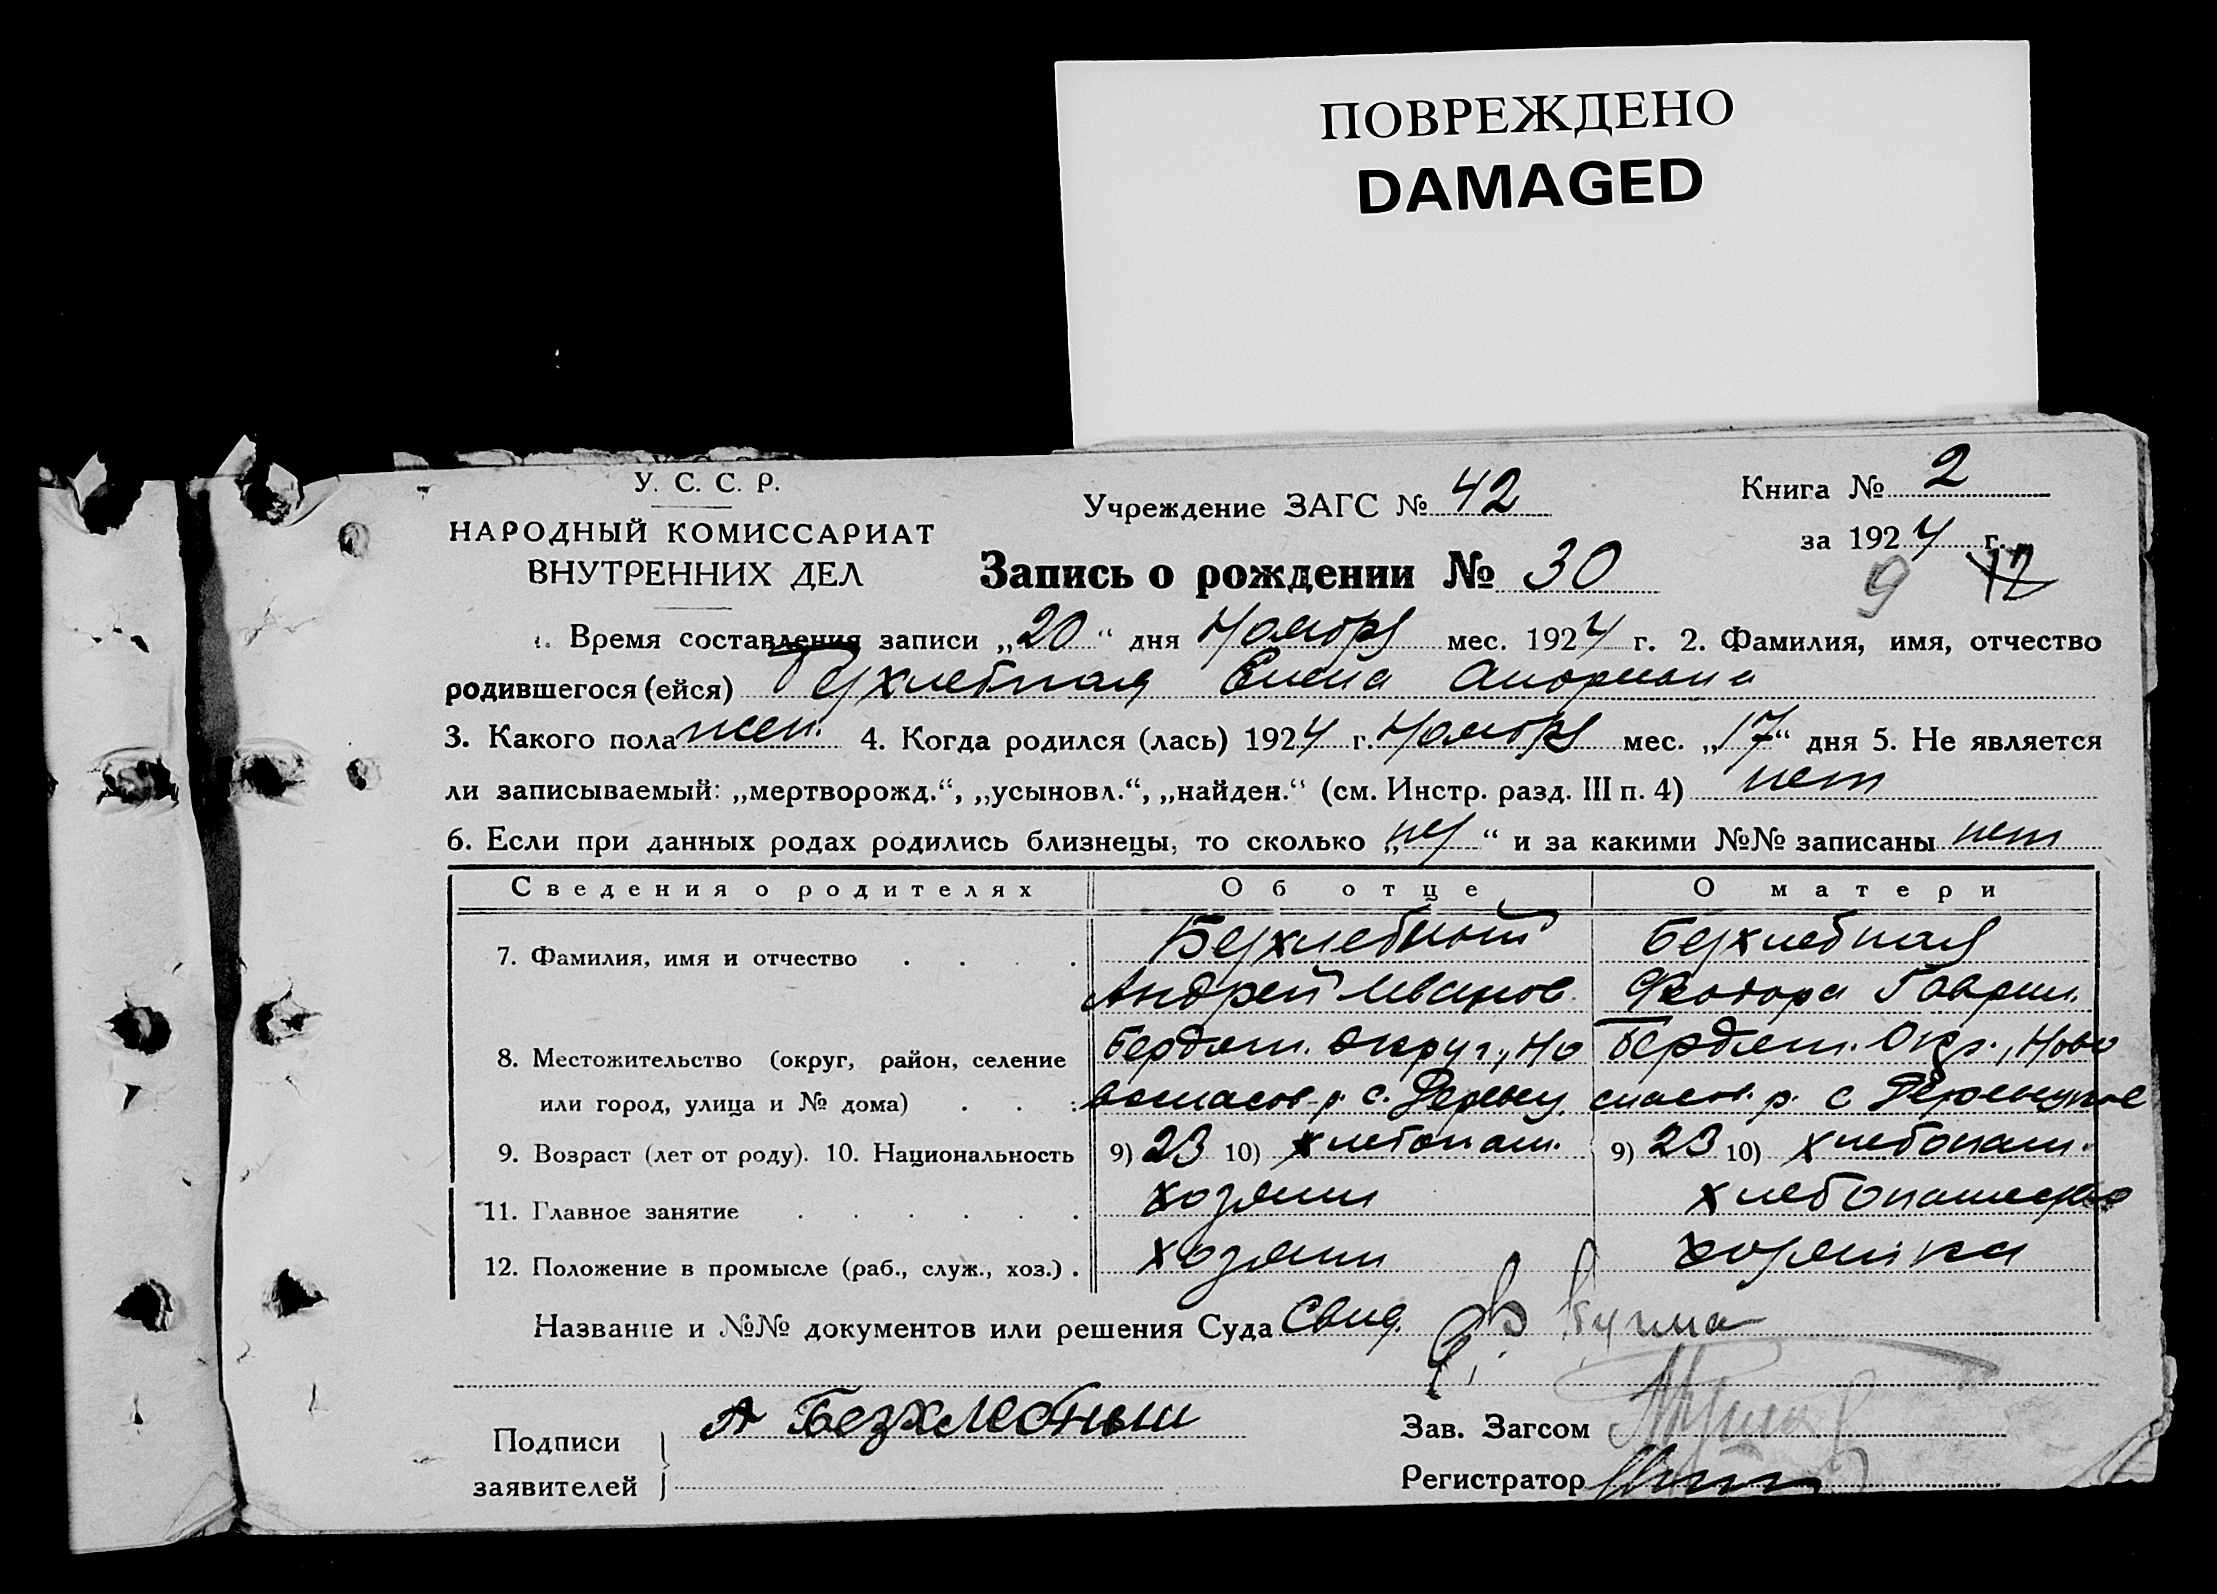 ПОВРЕЖДЕНО
DAMAGED
У. С. С. Р.
НАРОДНЫЙ КОМИССАРИАТ
ВНУТРЕННИХ ДЕЛ
Учреждение ЗАГС № 42
Книга № 2
за 1924 г.
Запись о рождении № 30
9 12
1. Время составления записи „20“ дня Ноября мес. 1924 г. 2. Фамилия, имя, отчество
родившегося (ейся) Безхлебная Елена
3. Какого пола жен. 4. Когда родился (лась) 1924 г. Ноября мес. „17“ дня 5. Не является
ли записываемый: „мертворожд.“, „усыновл.“, „найден.“ (см. Инстр. разд. III п. 4) нет
6. Если при данных родах родились близнецы, то сколько „ “ и за какими №№ записаны нет
Сведения о родителях Об отце О матери
7. Фамилия, имя и отчество Безхлебный Безхлебная
Андрей Иванов. Феодора Гаврил.
8. Местожительство (округ, район, селение Бердян. округ, Но Бердян. Окр., Ново
или город, улица и № дома) воспасов. р. с. спасов. р. с
9. Возраст (лет от роду). 10. Национальность 9) 23 10) хлебопаш. 9) 23 10) хлебопаш.
11. Главное занятие хозяин
12. Положение в промысле (раб., служ., хоз.) хозяин хозяйка
Название и №№ документов или решения Суда Свид.
А Безхлебный
Подписи
заявителей
Зав. Загсом
Регистратор